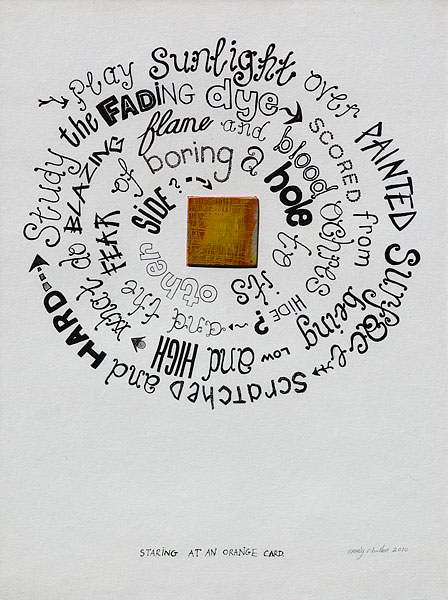 Play Sunlight over PAINTED Surface
Scratched and HARD
Study the FADING dye
SCORED from being LOW and HIGH
what do BLAZING flame and blood oranges HIDE?
and the FEAR of boring a hole to its other SIDE?
STARING AT AN ORANGE CARD.
2010